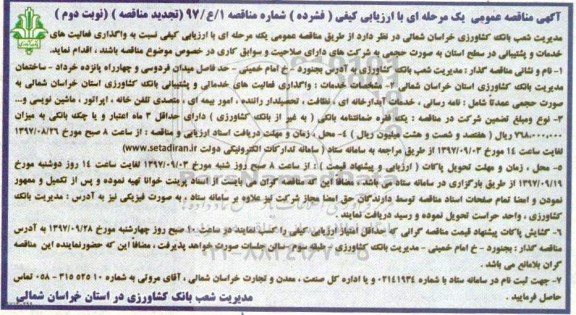 آگهی مناقصه عمومی یک مرحله ای با ارزیابی کیفی ( فشرده ) شماره مناقصه ۱/ع/۹۷ (تجدید مناقصه ) (نوبت دوم )
مدیریت شعب بانک کشاورزی خراسان شمالی در نظر دارد از طریق مناقصه عمومی یک مرحله ای با ارزیابی کیفی نسبت به واگذاری فعالیت های
خدمات و پشتیبانی در سطح استان به صورت حجمی به شرکت های دارای صلاحیت و سوابق کاری در خصوص موضوع مناقصه باشند ، اقدام نماید.
۱- نام و نشانی مناقصه گذار : مدیریت شعب بانک کشاورزی با آدرس بجنورد - خ امام خمینی - حد فاصل میدان فردوسی و چهارراه پانزده خرداد - ساختمان
مدیریت بانک کشاورزی استان خراسان شمالی ۲- مشخصات خدمات : واگذاری فعالیت های خدماتی و پشتیبانی بانک کشاورزی استان خراسان شمالی به
صورت حجمی عمدتا شامل : نامه رسانی ، خدمات آبدارخانه ای ، نظافت ، تحصیلدار راننده ، امور بیمه ای ، متصدی تلفن خانه ، اپراتور ، ماشین نویسی و...
۳- نوع ومبلغ تضمین شرکت در مناقصه : یک فقره ضمانتنامه بانکی ( به غیر از بانک کشاورزی ) دارای حداقل ۳ ماه اعتبار و یا چک بانکی به میزان
ریال ( هفتصد و شصت و هشت میلیون ریال ) ۴- محل ، زمان و مهلت دریافت اسناد ارزیابی و مناقصه : از ساعت ۸ صبح مورخ ۱۳۹۷/۰۸/۲۶
لغایت ساعت ۱۴ مورخ ۱۳۹۷/۰۹/۰۳ از طریق مراجعه به سامانه ستاد ( سامانه تدارکات الکترونیکی دولت www.setadiran.ir)
۵- محل ، زمان و مهلت تحویل پاکات ( ارزیابی و پیشنهاد قیمت ) : از ساعت ۸ صبح روز شنبه مورخ ۱۳۹۷/۰۹/۰۳ لغایت ساعت ۱۴ روز دوشنبه مورخ
۱۳۹۷/۰۹/۱۹ از طریق بارگزاری در سامانه ستاد می باشد. مضافا این که مناقصه گران می بایست از اسناد پرینت خوانا تهیه نموده و پس از تکمیل و ممهور
نمودن و امضا تمام صفحات اسناد مناقصه توسط دارندگان حق امضا مجاز شرکت نیز علاوه بر سامانه ستاد ، به صورت فیزیکی نیز به آدرس : مدیریت بانک
کشاورزی ، واحد حراست تحویل نموده و رسید دریافت نمایند .
۶- گشایش پاکات پیشنهاد قیمت مناقصه گرانی که حداقل امتیاز ارزیابی کیفی را کسب نمایند در ساعت ۱۰ صبح روز چهارشنبه مورخ ۱۳۹۷/۰۹/۲۸ به آدرس
مناقصه گذار : بجنورد - خ امام خمینی - مدیریت بانک کشاورزی - طبقه سوم - سالن جلسات صورت خواهد پذیرفت ، مضافا این که حضورنماینده این مناقصه
گران بلامانع می باشد .
۷- جهت ثبت نام در سامانه ستاد با شماره ۰۲۱۴۱۹۳۴ و یا اداره کل صنعت ، معدن و تجارت خراسان شمالی ، آقای مروتی به شماره ۱۰ ۵۲۵ ۳۱۵ - ۰۵۸ تماس
حاصل فرمایید .
مدیریت شعب بانک کشاورزی در استان خراسان شمالی